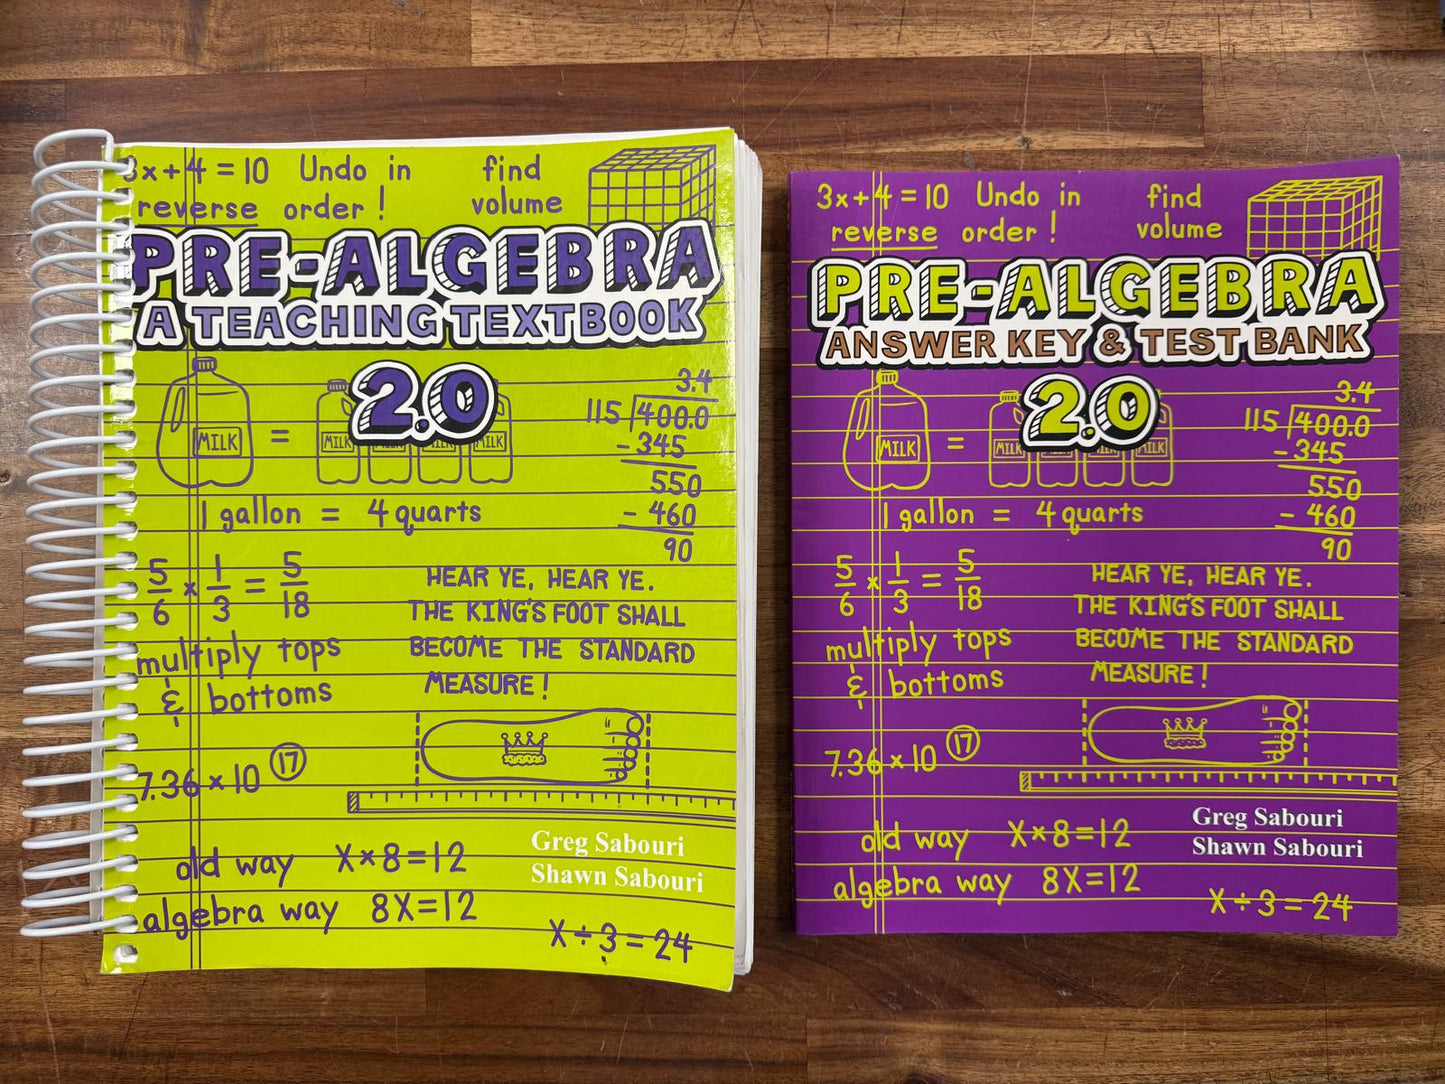 3x+4=10 Undo in
reverse order!
find
volume
PRE-ALGEBRA
A TEACHING TEXTBOOK
2.0
MILK = MILK MILK MILK MILK
3.4
115 400.0
-345
550
- 460
90
1 gallon = 4 quarts
5/6 x 1/3 = 5/18
multiply tops
& bottoms
HEAR YE, HEAR YE.
THE KING'S FOOT SHALL
BECOME THE STANDARD
MEASURE!
7.36 x 10 17
Greg Sabouri
Shawn Sabouri
old way X x 8 = 12
algebra way 8X = 12
X ÷ 3 = 24
3x+4=10 Undo in
reverse order!
find
volume
PRE-ALGEBRA
ANSWER KEY & TEST BANK
2.0
MILK = MILK MILK MILK MILK
3.4
115 400.0
-345
550
- 460
90
1 gallon = 4 quarts
5/6 x 1/3 = 5/18
multiply tops
& bottoms
HEAR YE, HEAR YE.
THE KING'S FOOT SHALL
BECOME THE STANDARD
MEASURE!
7.36 x 10 17
Greg Sabouri
Shawn Sabouri
old way X x 8 = 12
algebra way 8X = 12
X ÷ 3 = 24